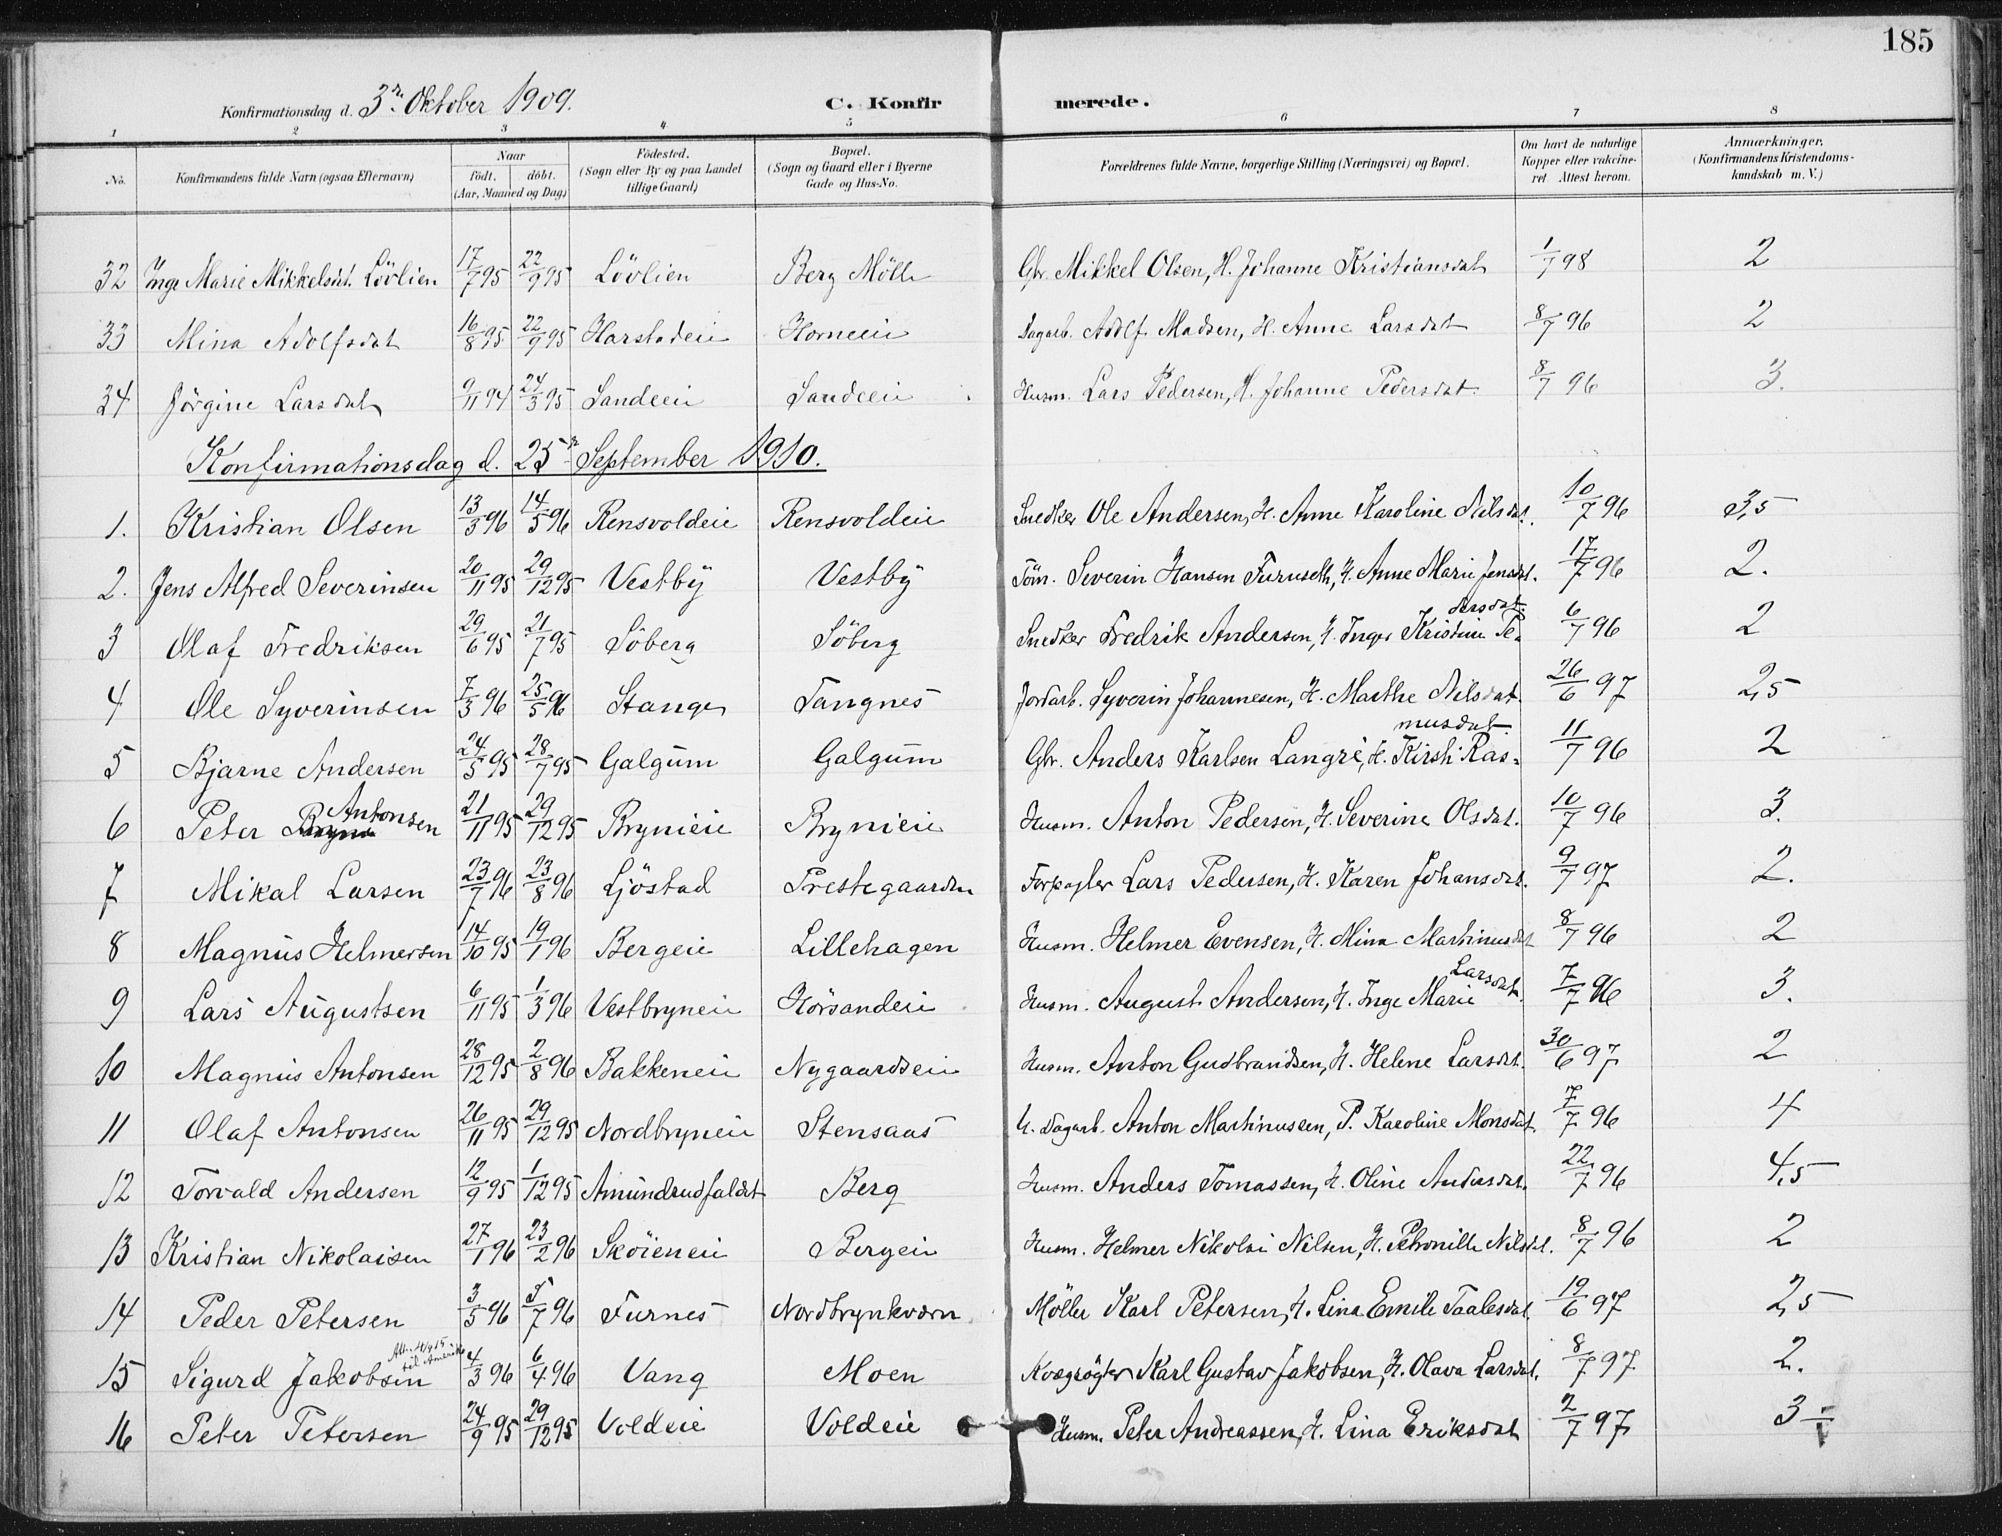 185
Konfirmationsdag d. 3n Oktober 1909. C. Konfirmerede.
1 2 3 4 5 6 7 8
No. Konfirmandens fulde Navn (ogsaa Efternavn) Naar födt. döbt. (Aar, Maaned og Dag) Födested. (Sogn eller By og paa Landet tillige Gaard) Bopæl. (Sogn og Gaard eller i Byerne Gade og Hus-No. Forældrenes fulde Navne, borgerlige Stilling (Næringsvei) og Bopæl. Om havt de naturlige Kopper eller vakcineret. Attest herom. Anmærkninger. (Konfirmandens Kristendomskundskab m. V.)
32 Inge Marie Mikkelsdt. Lövlien 17/7 95 22/9 95 Lövlien Berg Mölle Gbr. Mikkel Olsen, H. Johanne Kristiansdat 1/7 98 2
33 Mina Adolfsdat 16/8 95 22/9 95 Harstadeie Horneeie Dagarb. Adolf Madsen, H. Anne Larsdat 8/7 96 2
34 Jörgine Larsdat 9/11 94 24/3 95 Sandeeie Sandeeie Husm. Lars Pedersen, H. Johanne Pedersdat. 8/7 96 3.
Konfirmationsdag d. 25n September 1910.
1. Kristian Olsen 13/3 96 14/5 96 Rensvoldeie Rensvoldeie Snedker Ole Andersen, H. Anne Karoline Nilsdat. 10/7 96 3,5
2. Jens Alfred Severinsen 20/11 95 29/12 95 Vestby Vestby Töm. Severin Hansen Furuseth, H. Anne Marie Jensdat. 17/7 96 2.
3 Olaf Fredriksen 29/6 95 21/7 95 Söberg Söberg Snedker Fredrik Andersen, H. Inger Kristine Pedersdat. 6/7 96 2
4 Ole Syverinsen 7/3 96 25/5 96 Stange Tangnes Jordarb. Syverin Johannesen, H. Marthe Nilsdat. 26/6 97 2,5
5 Bjarne Andersen 24/5 95 28/7 95 Galgum Galgum Gbr. Anders Karlsen Langre, H. Kirsti Rasmusdat. 11/7 96 2
6 Peter Antonsen 21/11 95 29/12 95 Brynieie Brynieie Husm. Anton Pedersen, H. Severine Olsdat. 10/7 96 3.
7 Mikal Larsen 23/7 96 23/8 96 Ljöstad Prestegaarden Forpagter Lars Pedersen, H. Karen Johansdat. 9/7 97 2.
8 Magnus Helmersen 14/10 95 19/1 96 Bergeie Lillehagen Husm. Helmer Evensen, H. Mina Martinusdat 8/7 96 2
9 Lars Augustsen 6/11 95 1/3 96 Vestbryneie Hörsandeie Husm. August Andersen, H. Inge Marie Larsdat. 7/7 96 3.
10 Magnus Antonsen 28/12 95 2/8 96 Bakkeneie Nygaardseie Husm. Anton Gudbrandsen, H. Helene Larsdat. 30/6 97 2
11 Olaf Antonsen 26/11 95 29/12 95 Nordbryneie Stensaas U. Dagarb. Anton Martinussen, P. Karoline Monsdat. 7/7 96 4
12 Torvald Andersen 12/9 95 1/12 95 Amundrudfaldet Berg Husm. Anders Tomassen, H. Oline Andersdat. 22/7 96 4,5
13 Kristian Nikolaisen 27/1 96 23/2 96 Skoieneie Bergeie Husm. Helmer Nikolai Nilsen, H. Petronille Nilsdat. 8/7 96 2
14 Peder Petersen 3/5 96 5/7 96 Furnes Nordbrynkværn Möller Karl Petersen, H. Lina Emilie Taalesdat. 19/6 97 2,5
15 Sigurd Jakobsen Att. 4/4 15 til Amerika 4/3 96 6/4 96 Vang Moen Kvægrögter Karl Gustav Jakobsen, H. Olava Larsdat. 8/7 97 2.
16 Peter Petersen 24/9 95 29/12 95 Voldeie Voldeie Husm. Peter Andreassen, H. Lina Eriksdat 2/7 97 3